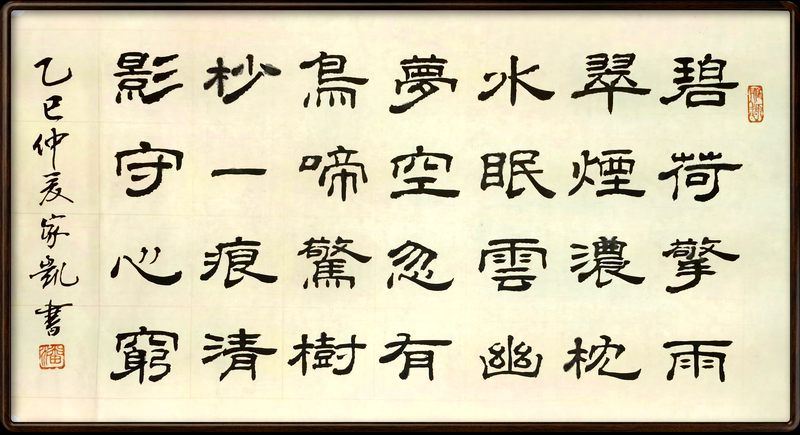 碧荷擎雨
翠煙濃枕
水眠雲幽
夢空忽有
鳥啼驚樹
杪一痕清
影守心窮
乙巳仲夏家凱書